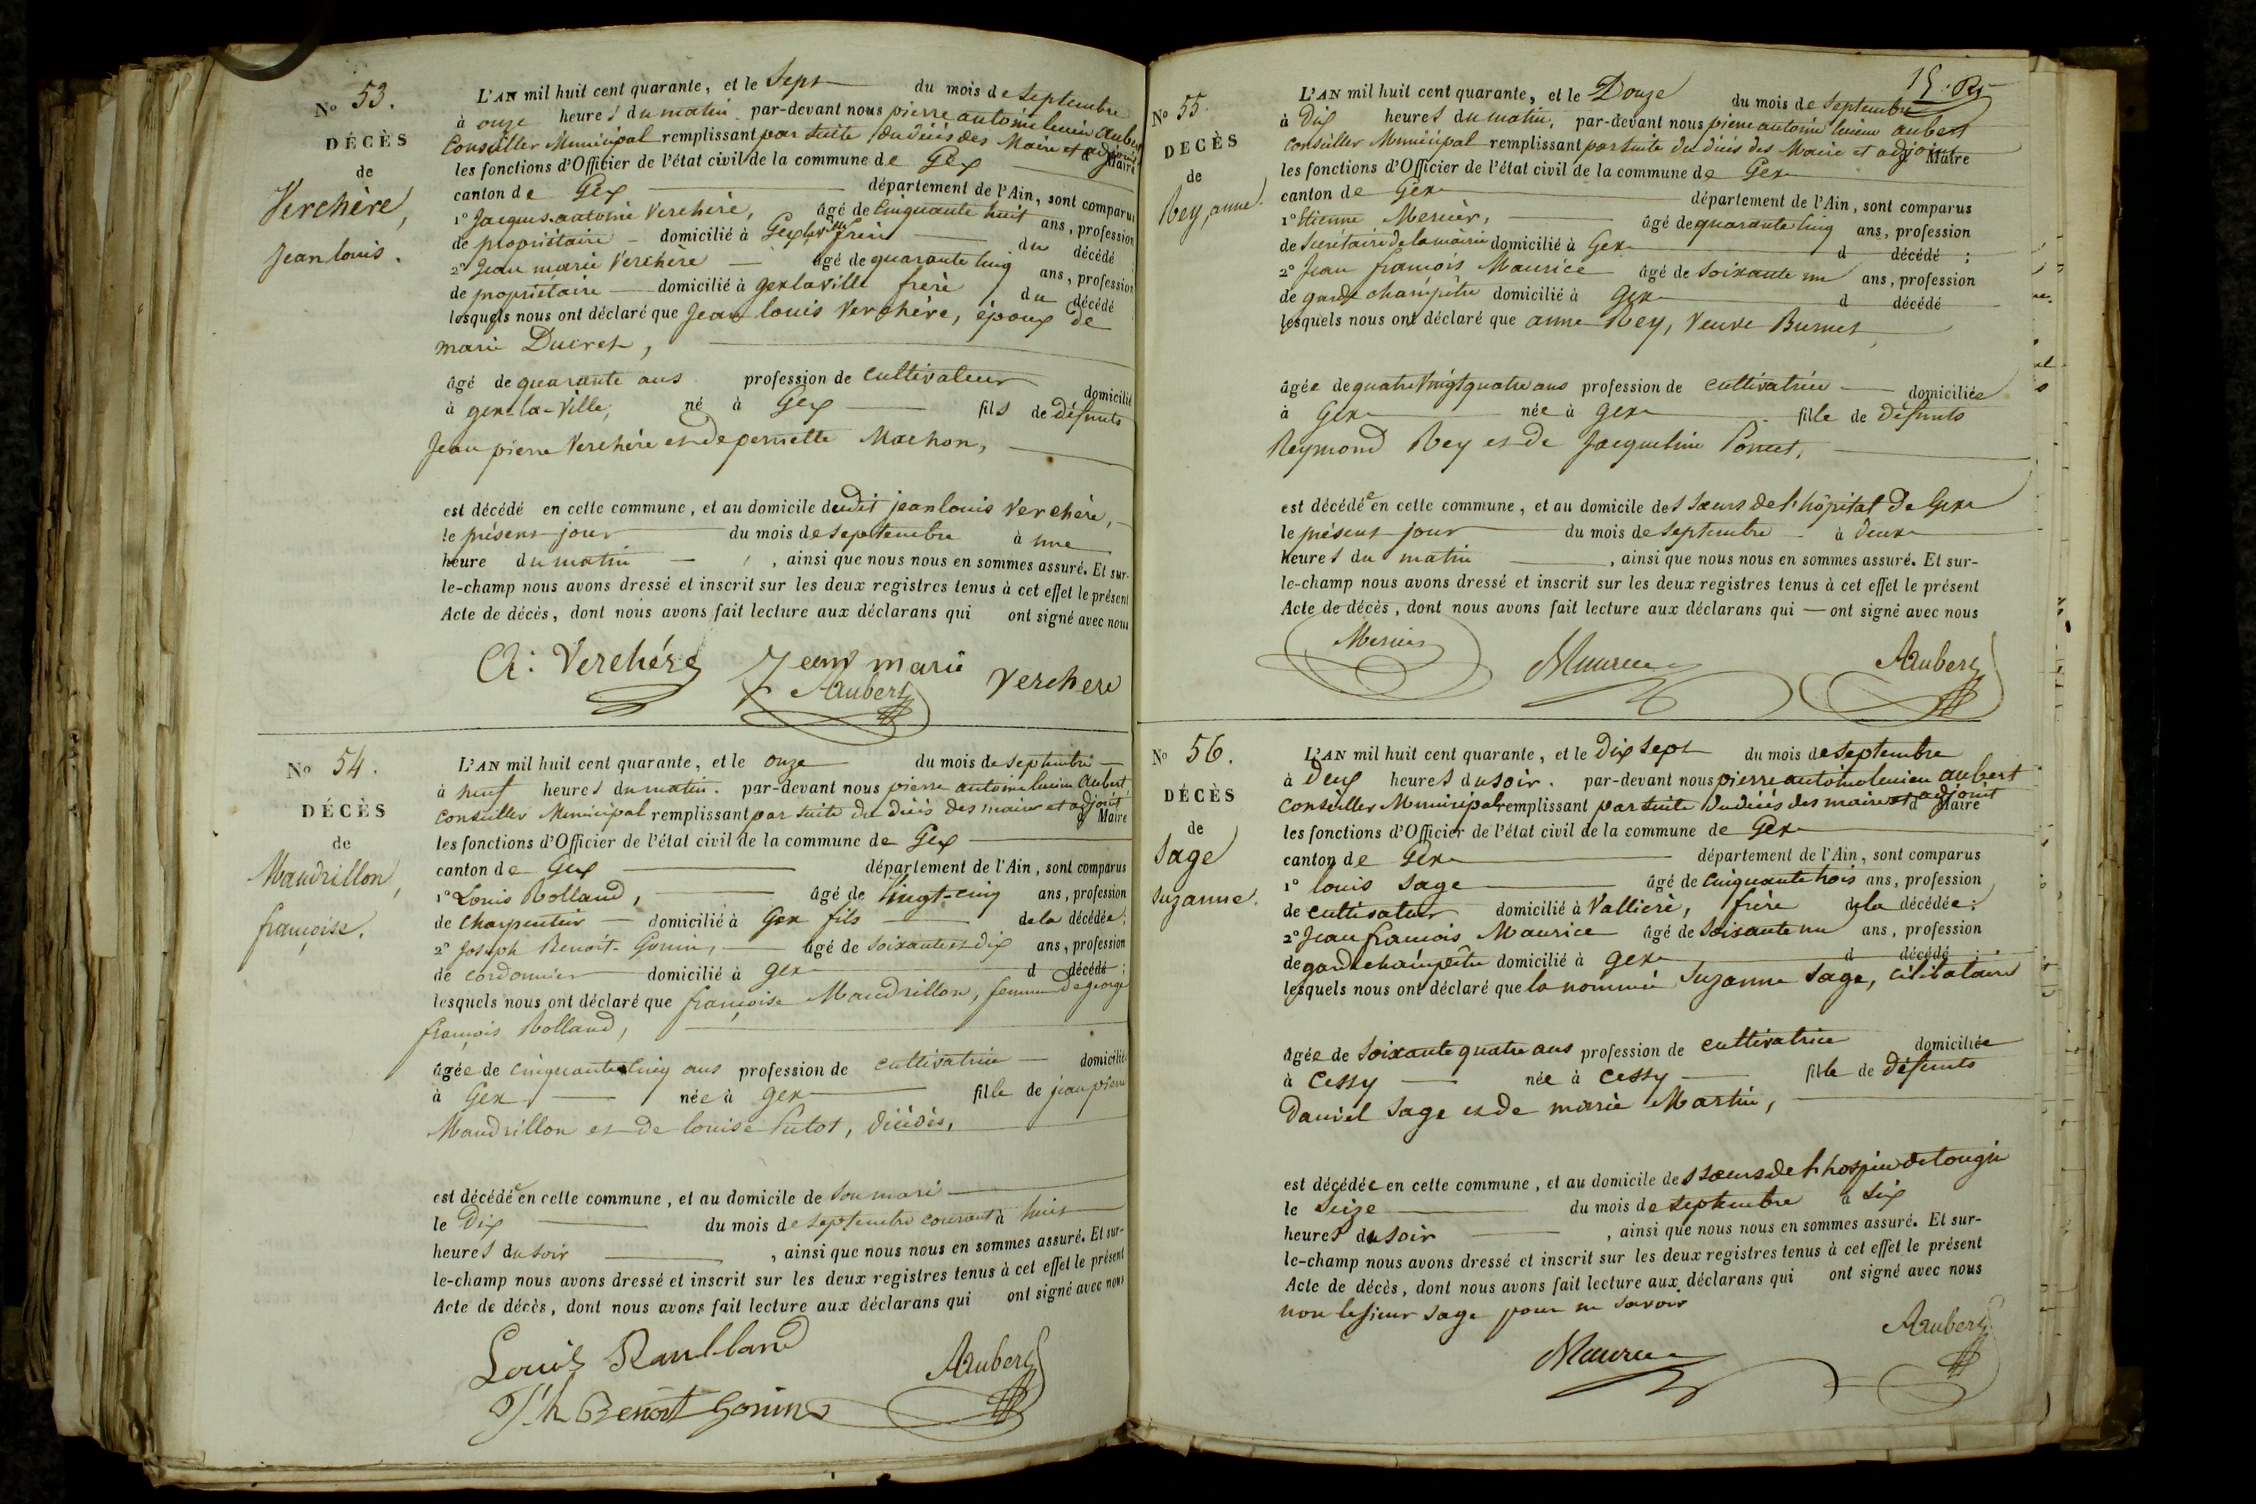 No 53.
DÉCÈS
de
Verchère,
Jean louis.
L'AN mil huit cent quarante, et le Sept du mois de Septembre
à onze heures du matin par-devant nous pierre antoine lucien Aubert
Conseiller Municipal remplissant par suite du décès des Maire et adjoint d Maire
les fonctions d'Officier de l'état civil de la commune de Gex
canton de Gex département de l'Ain, sont comparus
1° Jacques antoine Verchère, âgé de Cinquante huit ans, profession
de propriétaire domicilié à Gex la ville frère du décédé
2° Jean marie Verchère âgé de quarante cinq ans, profession
de propriétaire domicilié à gex la ville frère du décédé
lesquels nous ont déclaré que Jean louis Verchère, époux de
marie Ducret,
âgé de quarante ans profession de cultivateur domicilié
à gex-la-ville, né à Gex fils de défunts
Jean pierre Verchère et de pernette Machon,
est décédé en cette commune, et au domicile dudit jean louis Verchère,
le présent jour du mois de septembre à une
heure du matin, ainsi que nous nous en sommes assuré. Et sur-
le-champ nous avons dressé et inscrit sur les deux registres tenus à cet effet le présent
Acte de décès, dont nous avons fait lecture aux déclarans qui ont signé avec nous
Verchére Jean marie
Verchere
Aubert
No 54.
DÉCÈS
de
Mandrillon,
françoise.
L'AN mil huit cent quarante, et le onze du mois de septembre
à neuf heures du matin. par-devant nous pierre antoine lucien Aubert,
Conseiller Municipal remplissant par suite du décès des maire et adjoint d Maire
les fonctions d'Officier de l'état civil de la commune de Gex
canton de Gex département de l'Ain, sont comparus
1° Louis Rolland, âgé de vingt-cinq ans, profession
de charpentier domicilié à Gex fils de la décédée;
2° Joseph Benoit Gonin, âgé de soixante et dix ans, profession
de cordonnier domicilié à gex d décédé;
lesquels nous ont déclaré que françoise Mandrillon, femme de george
françois Rolland,
âgée de cinquante cinq ans profession de cultivatrice domiciliée
à Gex née à gex fille de jean pierre
Mandrillon et de louise, décédés,
est décédée en cette commune, et au domicile de son mari
le Dix du mois de septembre courant à huit
heures du soir, ainsi que nous nous en sommes assuré. Et sur-
le-champ nous avons dressé et inscrit sur les deux registres tenus à cet effet le présent
Acte de décès, dont nous avons fait lecture aux déclarans qui ont signé avec nous
Louis Raulland
Aubert
Benoit Gonin
15.
No 55.
DÉCÈS
de
Rey, anne.
L'AN mil huit cent quarante, et le Douze du mois de Septembre
à Dix heures du matin, par-devant nous pierre antoine lucien aubert
conseiller Municipal remplissant par suite du décès des Maire et adjoint d Maire
les fonctions d'Officier de l'état civil de la commune de Gex
canton de Gex département de l'Ain, sont comparus
1° Etienne Mercier, âgé de quarante cinq ans, profession
de Secrétaire de la mairie domicilié à Gex d décédé;
2° Jean françois Maurice âgé de soixante un ans, profession
de garde champêtre domicilié à Gex d décédé
lesquels nous ont déclaré que anne Rey, Veuve Burnet
âgée de quatre vingt quatre ans profession de cultivatrice domiciliée
à Gex née à gex fille de défunts
Reymond Rey et de Jacqueline Ponnet,
est décédée en cette commune, et au domicile des sœurs de l'hôpital de Gex
le présent jour du mois de septembre à deux
heures du matin, ainsi que nous nous en sommes assuré. Et sur-
le-champ nous avons dressé et inscrit sur les deux registres tenus à cet effet le présent
Acte de décès, dont nous avons fait lecture aux déclarans qui ont signé avec nous
Mercier Maurice Aubert
No 56.
DÉCÈS
de
Sage
Suzanne.
L'AN mil huit cent quarante, et le Dix sept du mois de septembre
à Deux heures du soir. par-devant nous pierre antoine lucien aubert
Conseiller Municipal remplissant par suite du décès des maire et adjoint d Maire
les fonctions d'Officier de l'état civil de la commune de Gex
canton de Gex département de l'Ain, sont comparus
1° louis Sage âgé de cinquante trois ans, profession
de cultivateur domicilié à Vallière, frère de la décédée;
2° Jean françois Maurice âgé de soixante un ans, profession
de garde champêtre domicilié à gex d décédé;
lesquels nous ont déclaré que la nommée Suzanne Sage, célibataire
âgée de soixante quatre ans profession de cultivatrice domiciliée
à Cessy née à Cessy fille de défunts
Daniel Sage et de marie Martin,
est décédée en cette commune, et au domicile des sœurs de l'hospice de tougin
le seize du mois de septembre à six
heures du soir, ainsi que nous nous en sommes assuré. Et sur-
le-champ nous avons dressé et inscrit sur les deux registres tenus à cet effet le présent
Acte de décès, dont nous avons fait lecture aux déclarans qui ont signé avec nous
non le sieur Sage pour ne savoir
Maurice Aubert